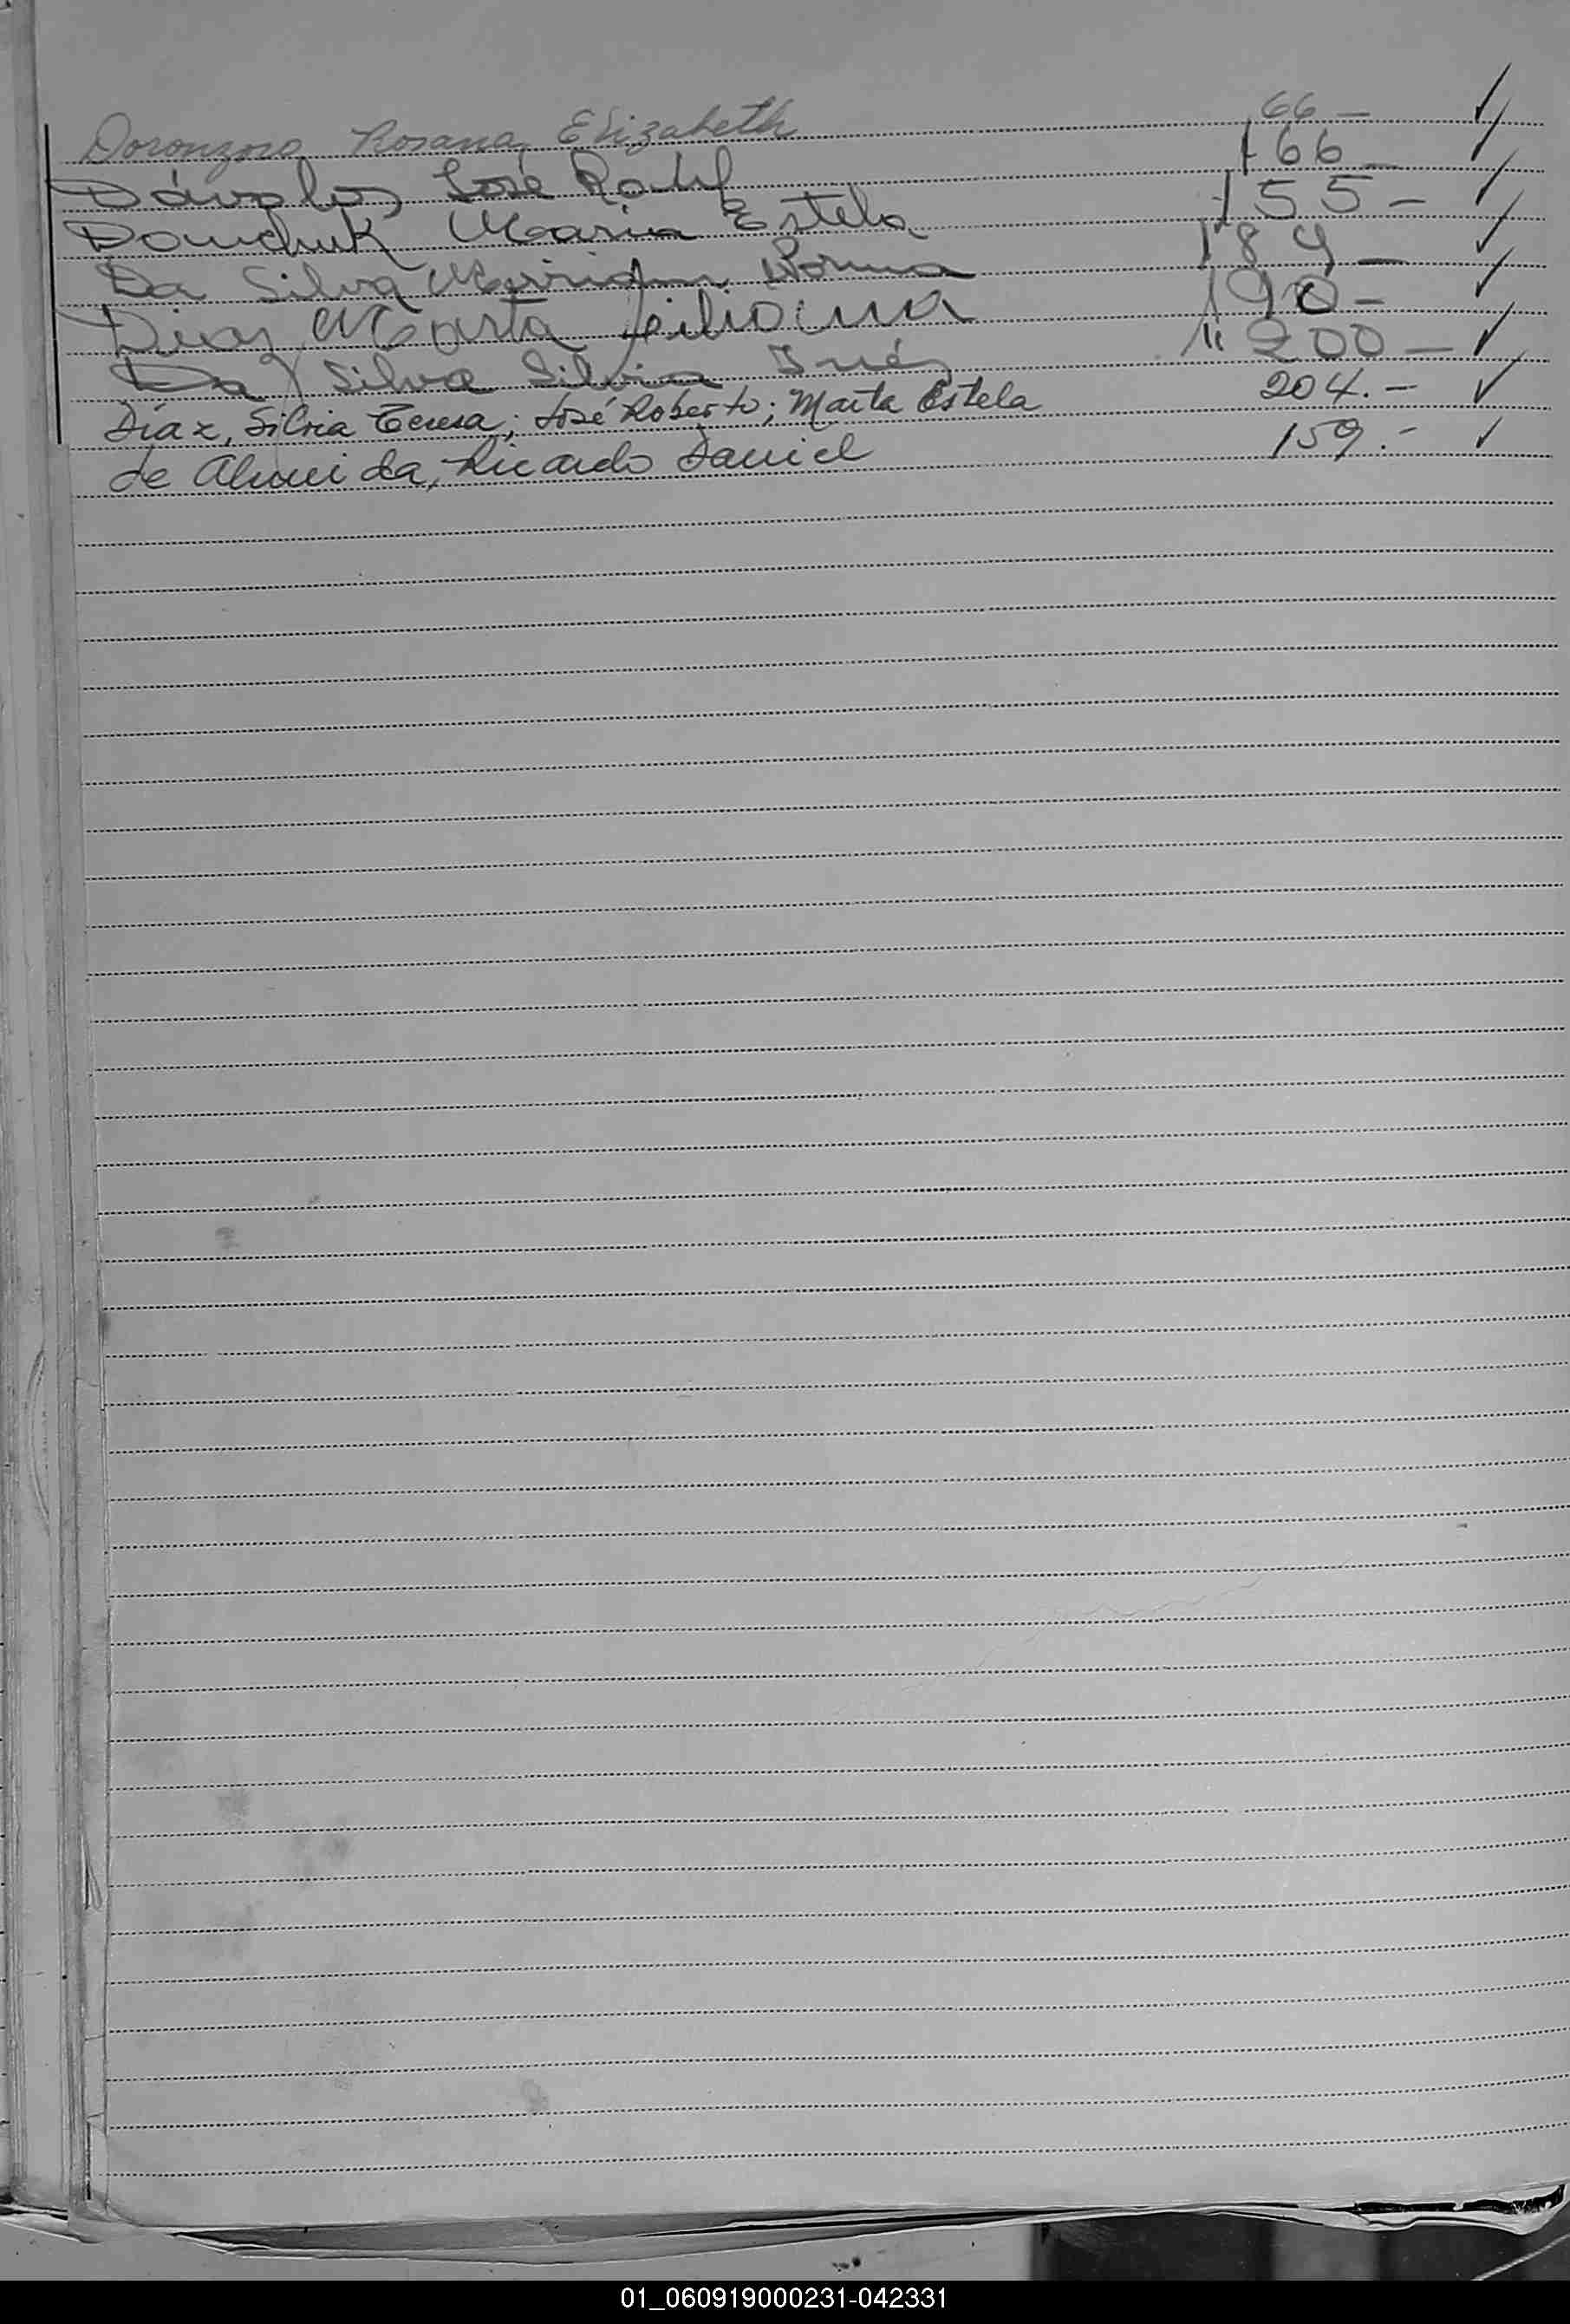 Doronzoro Rosana Elizabeth 66 —
Dávalos José Raúl 166 —
Dowchuk Maria Estela 155 —
Da Silva Mirian Norma 189 —
Diaz Marta 190 —
Da Silva Silvia Inés " 200 —
Díaz, Silvia Teresa; José Roberto; Marta Estela 204.—
de Almeida, Ricardo Daniel 159.—
01_060919000231-042331